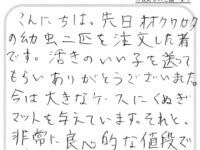 こんにちは。先日オオクワガタ
の幼虫二匹を注文した者
です。活きのいい子を送って
もらいありがとうございました
今は大きなケースにくぬぎ
マットを与えています。それと、
非常に良心的な値段で